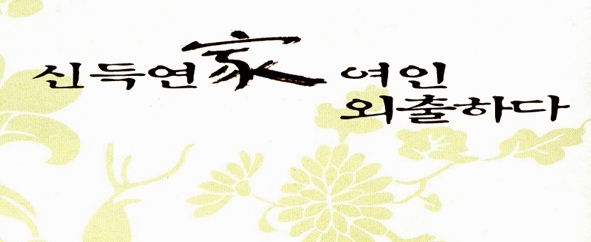 신득연家 여인
외출하다